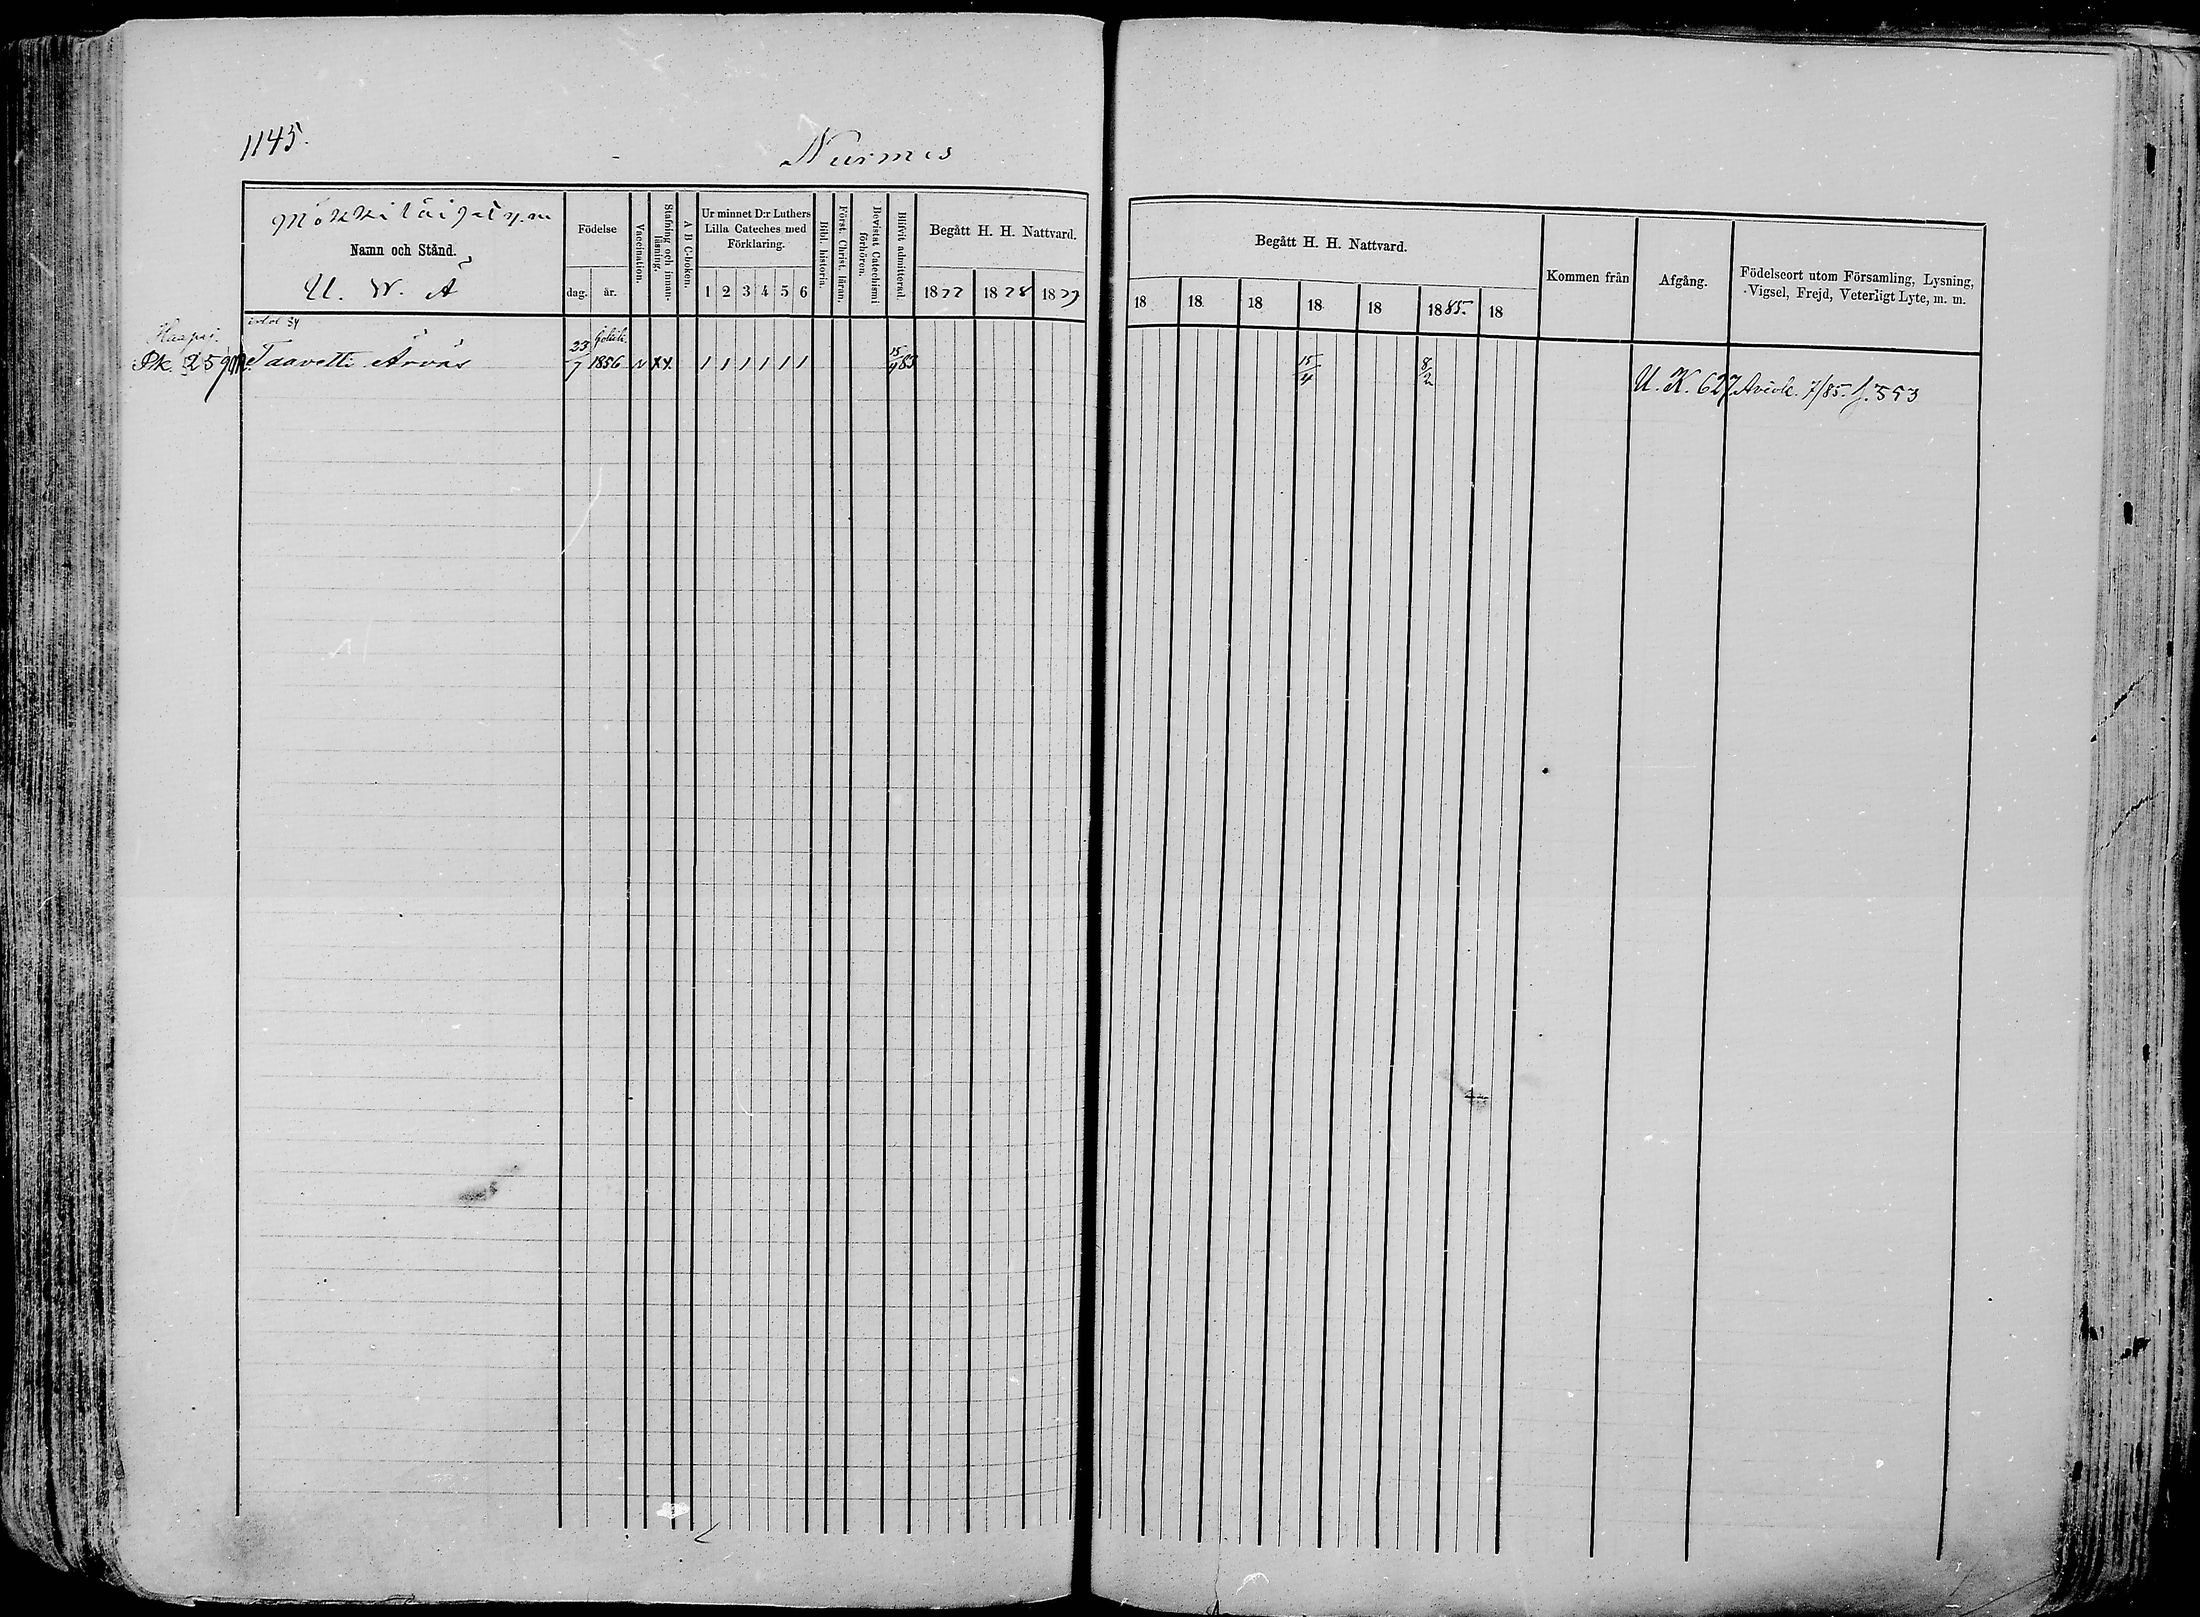 1145.
Nurmes
Namn och Stånd.
U. W. Ä
Födelse
dag. år.
Vaccination.
Stafning och innanläsning.
A B C-boken.
Ur minnet D:r Luthers
Lilla Cateches med
Förklaring.
1 2 3 4 5 6
Bibl. historia.
Först. Christ. läran.
Bevistat Catechismi förhören.
Blifvit admitterad.
Begått H. H. Nattvard.
1877 1878 1879
Begått H. H. Nattvard.
18 18 18 18 18 1885. 18
Kommen från
Afgång.
Födelseort utom Församling, Lysning,
Vigsel, Frejd, Veterligt Lyte, m. m.
Pk. 259 Taavetti Arvas 23/7 1856 v x x 1 1 1 1 1 1 15/4 83 15/4 8/2 U. K. 627 Aviole. 7/85. f. 553